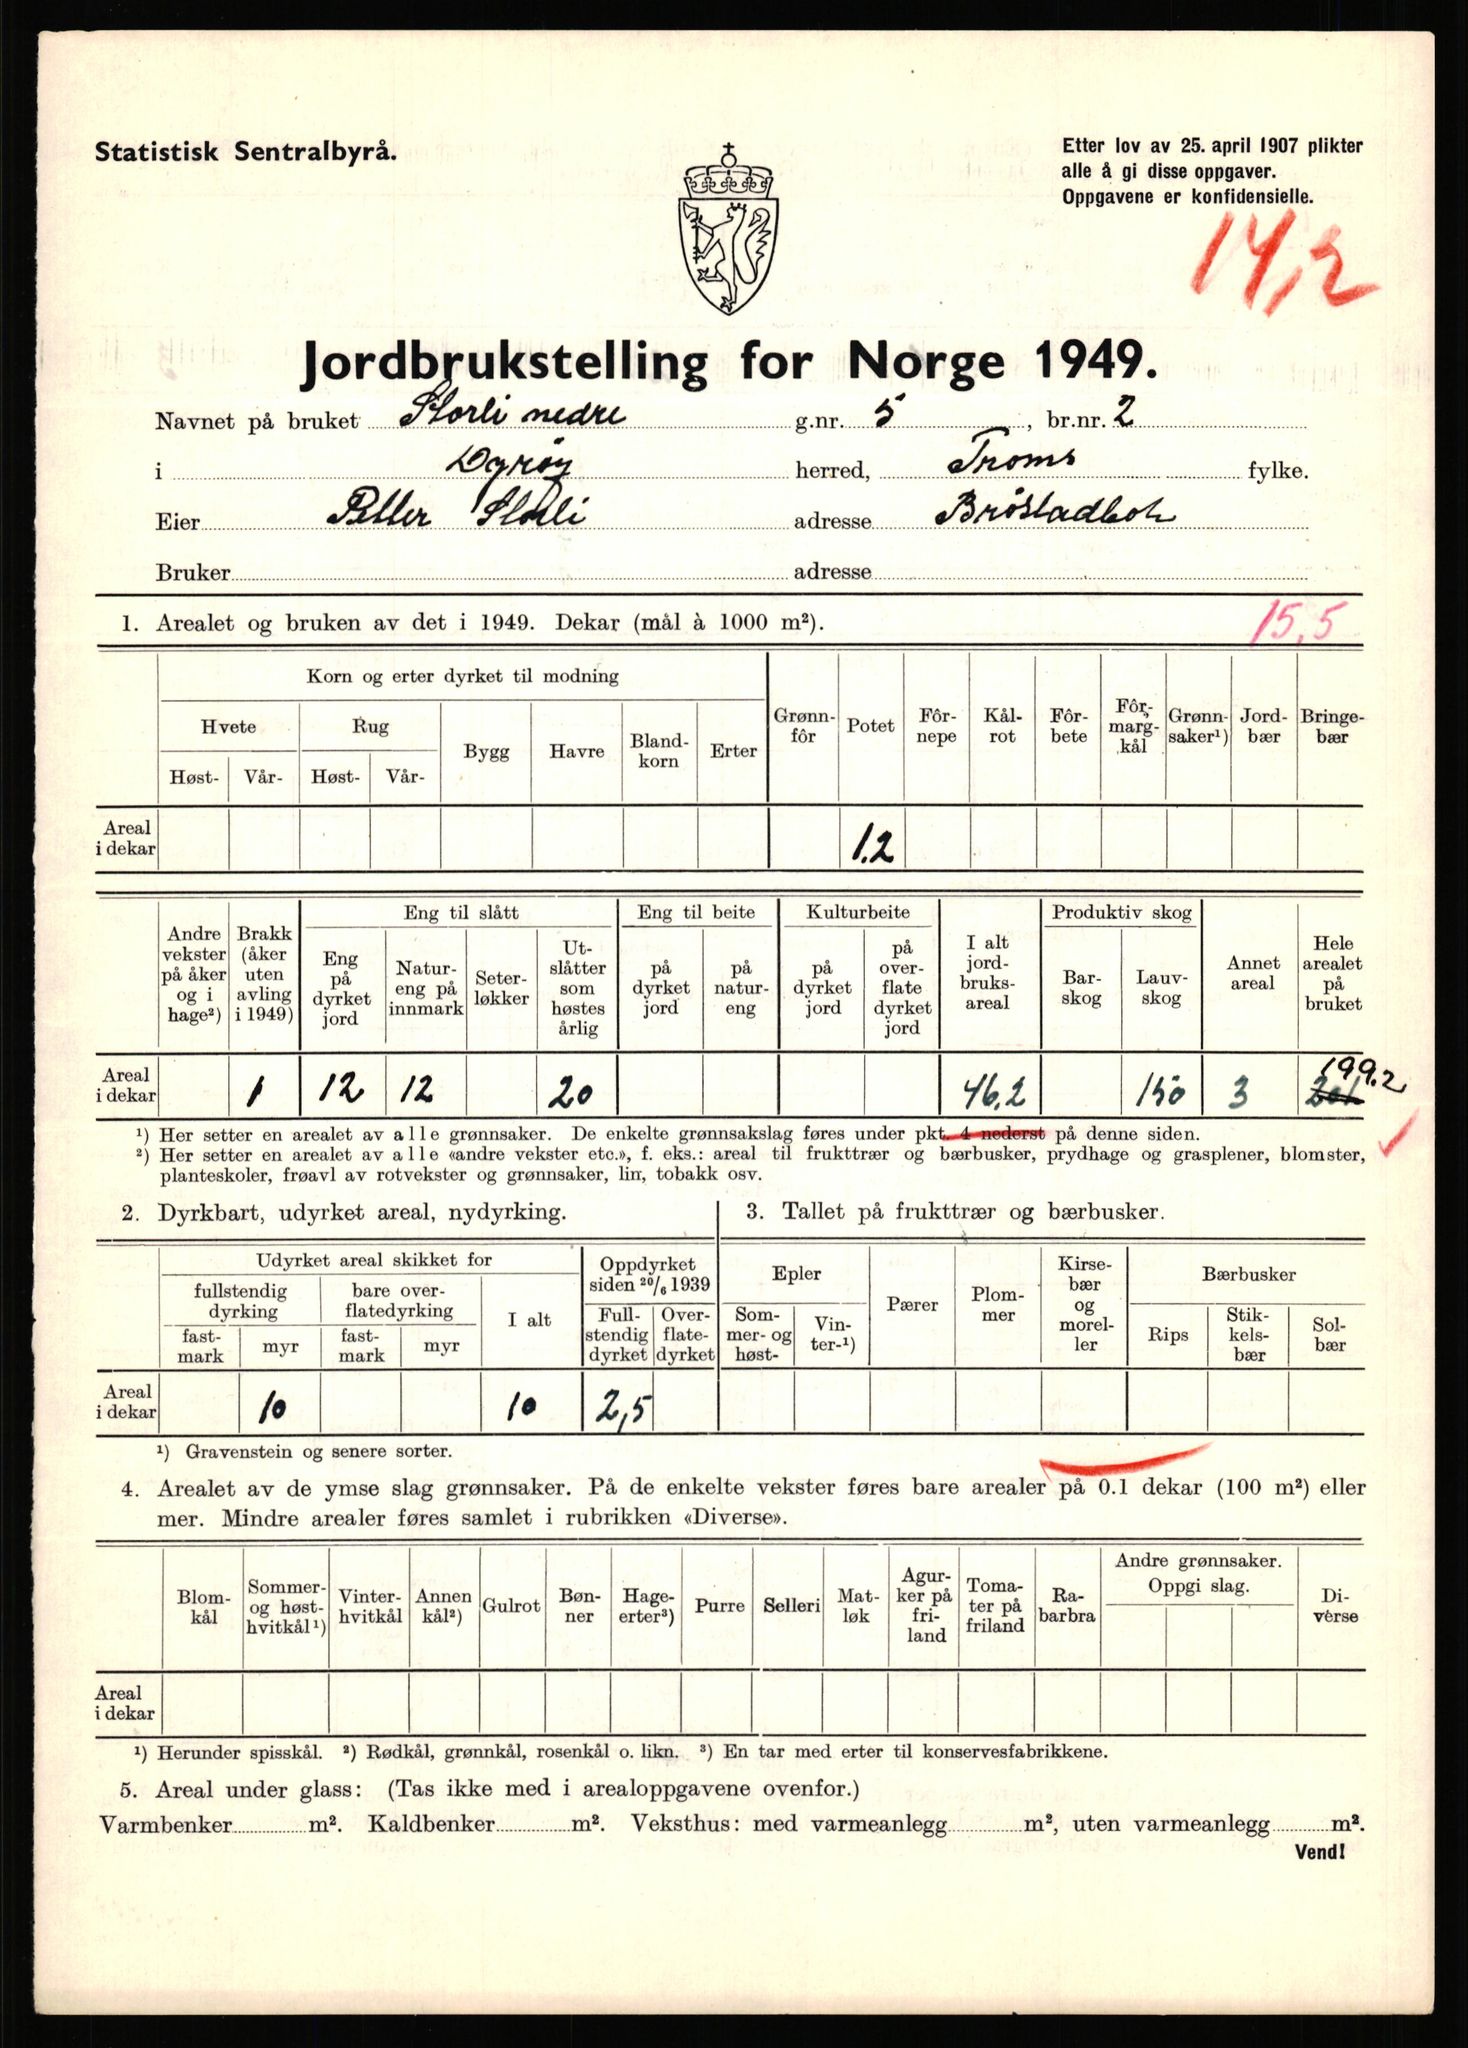 Statistisk Sentralbyrå.
Etter lov av 25. april 1907 plikter
alle å gi disse oppgaver.
Oppgavene er konfidensielle.
14,2
Jordbrukstelling for Norge 1949.
Navnet på bruket Storli nedre g.nr. 5, br.nr. 2
i Dyrøy herred, Troms fylke.
Eier Petter Storli adresse Brøstadbotn
Bruker adresse
1. Arealet og bruken av det i 1949. Dekar (mål à 1000 m²). 15,5
Korn og erter dyrket til modning
Hvete Rug Bygg Havre Bland-korn Erter Grønn-fôr Potet Fôr-nepe Kål-rot Fôr-bete Fôr-marg-kål Grønn-saker¹) Jord-bær Bringe-bær
Høst- Vår- Høst- Vår-
Areal i dekar 1.2
Andre vekster på åker og i hage²) Brakk (åker uten avling i 1949) Eng til slått Eng til beite Kulturbeite I alt jord-bruks-areal Produktiv skog Annet areal Hele arealet på bruket
Eng på dyrket jord Natur-eng på innmark Seter-løkker Ut-slåtter som høstes årlig på dyrket jord på natur-eng på dyrket jord på over-flate dyrket jord Bar-skog Lauv-skog
Areal i dekar 1 12 12 20 46.2 150 3 199.2
¹) Her setter en arealet av alle grønnsaker. De enkelte grønnsakslag føres under pkt. 4 nederst på denne siden.
²) Her setter en arealet av alle «andre vekster etc.», f. eks.: areal til frukttrær og bærbusker, prydhage og grasplener, blomster,
planteskoler, frøavl av rotvekster og grønnsaker, lin, tobakk osv.
2. Dyrkbart, udyrket areal, nydyrking.
Udyrket areal skikket for Oppdyrket siden 20/6 1939
fullstendig dyrking bare over-flatedyrking I alt Full-stendig dyrket Over-flate-dyrket
fast-mark myr fast-mark myr
Areal i dekar 10 10 2,5
3. Tallet på frukttrær og bærbusker.
Epler Pærer Plom-mer Kirse-bær og morel-ler Bærbusker
Som-mer- og høst- Vin-ter-¹) Rips Stik-kels-bær Sol-bær
¹) Gravenstein og senere sorter.
4. Arealet av de ymse slag grønnsaker. På de enkelte vekster føres bare arealer på 0.1 dekar (100 m²) eller
mer. Mindre arealer føres samlet i rubrikken «Diverse».
Blom-kål Sommer- og høst-hvitkål¹) Vinter-hvitkål Annen kål²) Gulrot Bøn-ner Hage-erter³) Purre Selleri Mat-løk Agur-ker på fri-land Toma-ter på friland Ra-barbra Andre grønnsaker. Oppgi slag. Di-verse
Areal i dekar
¹) Herunder spisskål. ²) Rødkål, grønnkål, rosenkål o. likn. ³) En tar med erter til konservesfabrikkene.
5. Areal under glass: (Tas ikke med i arealoppgavene ovenfor.)
Varmbenker m². Kaldbenker m². Veksthus: med varmeanlegg m², uten varmeanlegg m².
Vend!